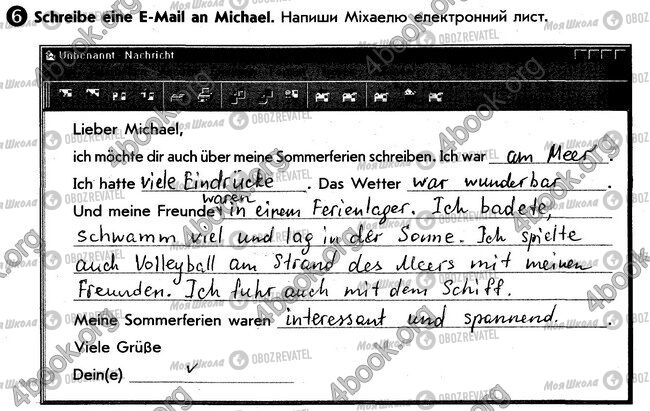 6 Schreibe eine E-Mail an Michael. Напиши Міхаелю електронний лист.
Unbenannt - Nachricht
Lieber Michael,
ich möchte dir auch über meine Sommerferien schreiben. Ich war am Meer.
Ich hatte viele Eindrücke. Das Wetter war wunderbar.
Und meine Freunde waren in einem Ferienlager. Ich badete,
schwamm viel und lag in der Sonne. Ich spielte
auch Volleyball am Strand des Meers mit meinen
Freunden. Ich fuhr auch mit dem Schiff.
Meine Sommerferien waren interessant und spannend.
Viele Grüße
Dein(e)